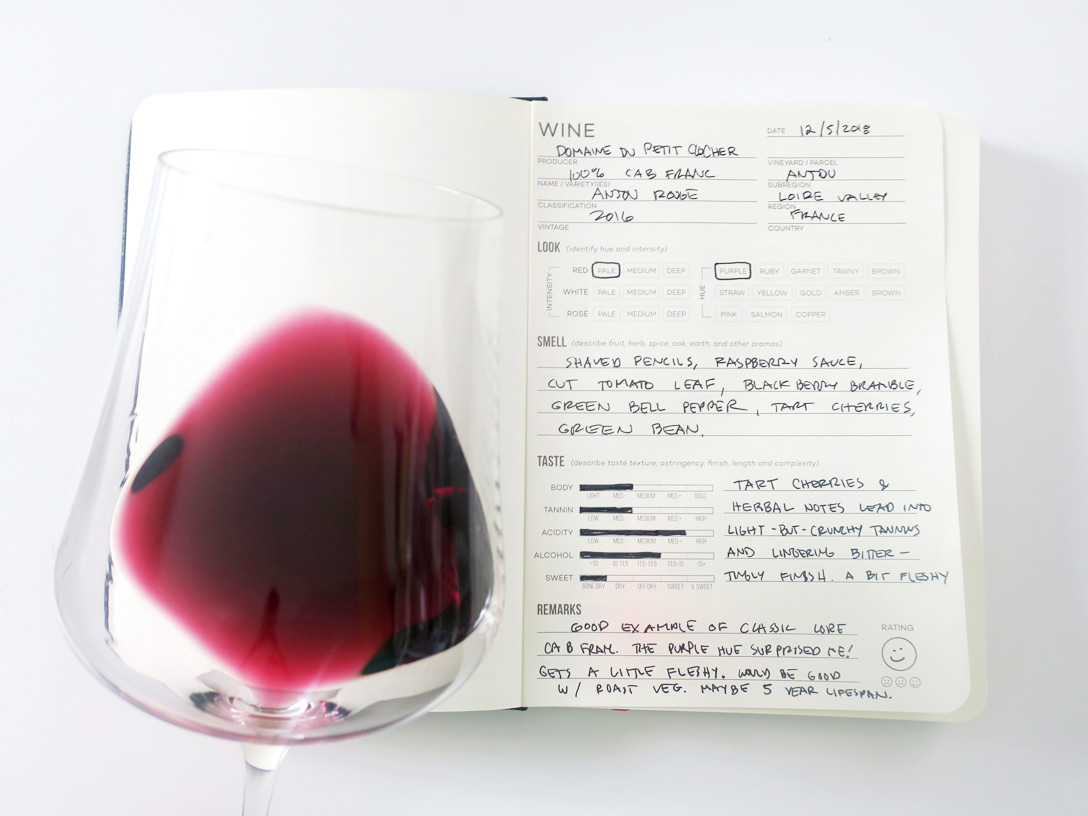 WINE
DATE 12/5/2018
DOMAINE DU PETIT CLOCHER
PRODUCER
VINEYARD / PARCEL
100% CAB FRANC
ANJOU
NAME / VARIETY(IES)
SUBREGION
ANJOU ROUGE
LOIRE VALLEY
CLASSIFICATION
REGION
2016
FRANCE
VINTAGE
COUNTRY
LOOK (identify hue and intensity)
INTENSITY
RED PALE MEDIUM DEEP
HUE
PURPLE RUBY GARNET TAWNY BROWN
WHITE PALE MEDIUM DEEP
STRAW YELLOW GOLD AMBER BROWN
ROSÉ PALE MEDIUM DEEP
PINK SALMON COPPER
SMELL (describe fruit, herb, spice, oak, earth, and other aromas)
SHAVED PENCILS, RASPBERRY SAUCE,
CUT TOMATO LEAF, BLACKBERRY BRAMBLE,
GREEN BELL PEPPER, TART CHERRIES,
GREEN BEAN.
TASTE (describe taste texture, astringency, finish, length and complexity)
BODY
LIGHT MED- MEDIUM MED+ BOLD
TANNIN
LOW MED- MEDIUM MED+ HIGH
ACIDITY
LOW MED- MEDIUM MED+ HIGH
ALCOHOL
<10 10-11.5 11.5-13.5 13.5-15 15+
SWEET
BONE DRY DRY OFF DRY SWEET V. SWEET
TART CHERRIES &
HERBAL NOTES LEAD INTO
LIGHT-BUT-CRUNCHY TANNINS
AND LINGERING BITTER-
TINGLY FINISH. A BIT FLESHY
REMARKS
GOOD EXAMPLE OF CLASSIC LOIRE
CAB FRAN. THE PURPLE HUE SURPRISED ME!
GETS A LITTLE FLESHY. WOULD BE GOOD
W/ ROAST VEG. MAYBE 5 YEAR LIFESPAN.
RATING